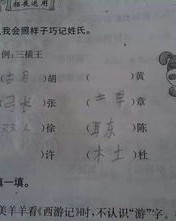 拓展运用
我会照样子巧记姓氏。
例:三横王
(古月)胡 ( )黄
(弓长)张 (立早)章
(双人)徐 (耳东)陈
( )许 (木土)杜
填一填。
美羊羊看《西游记》时,不认识“游”字。